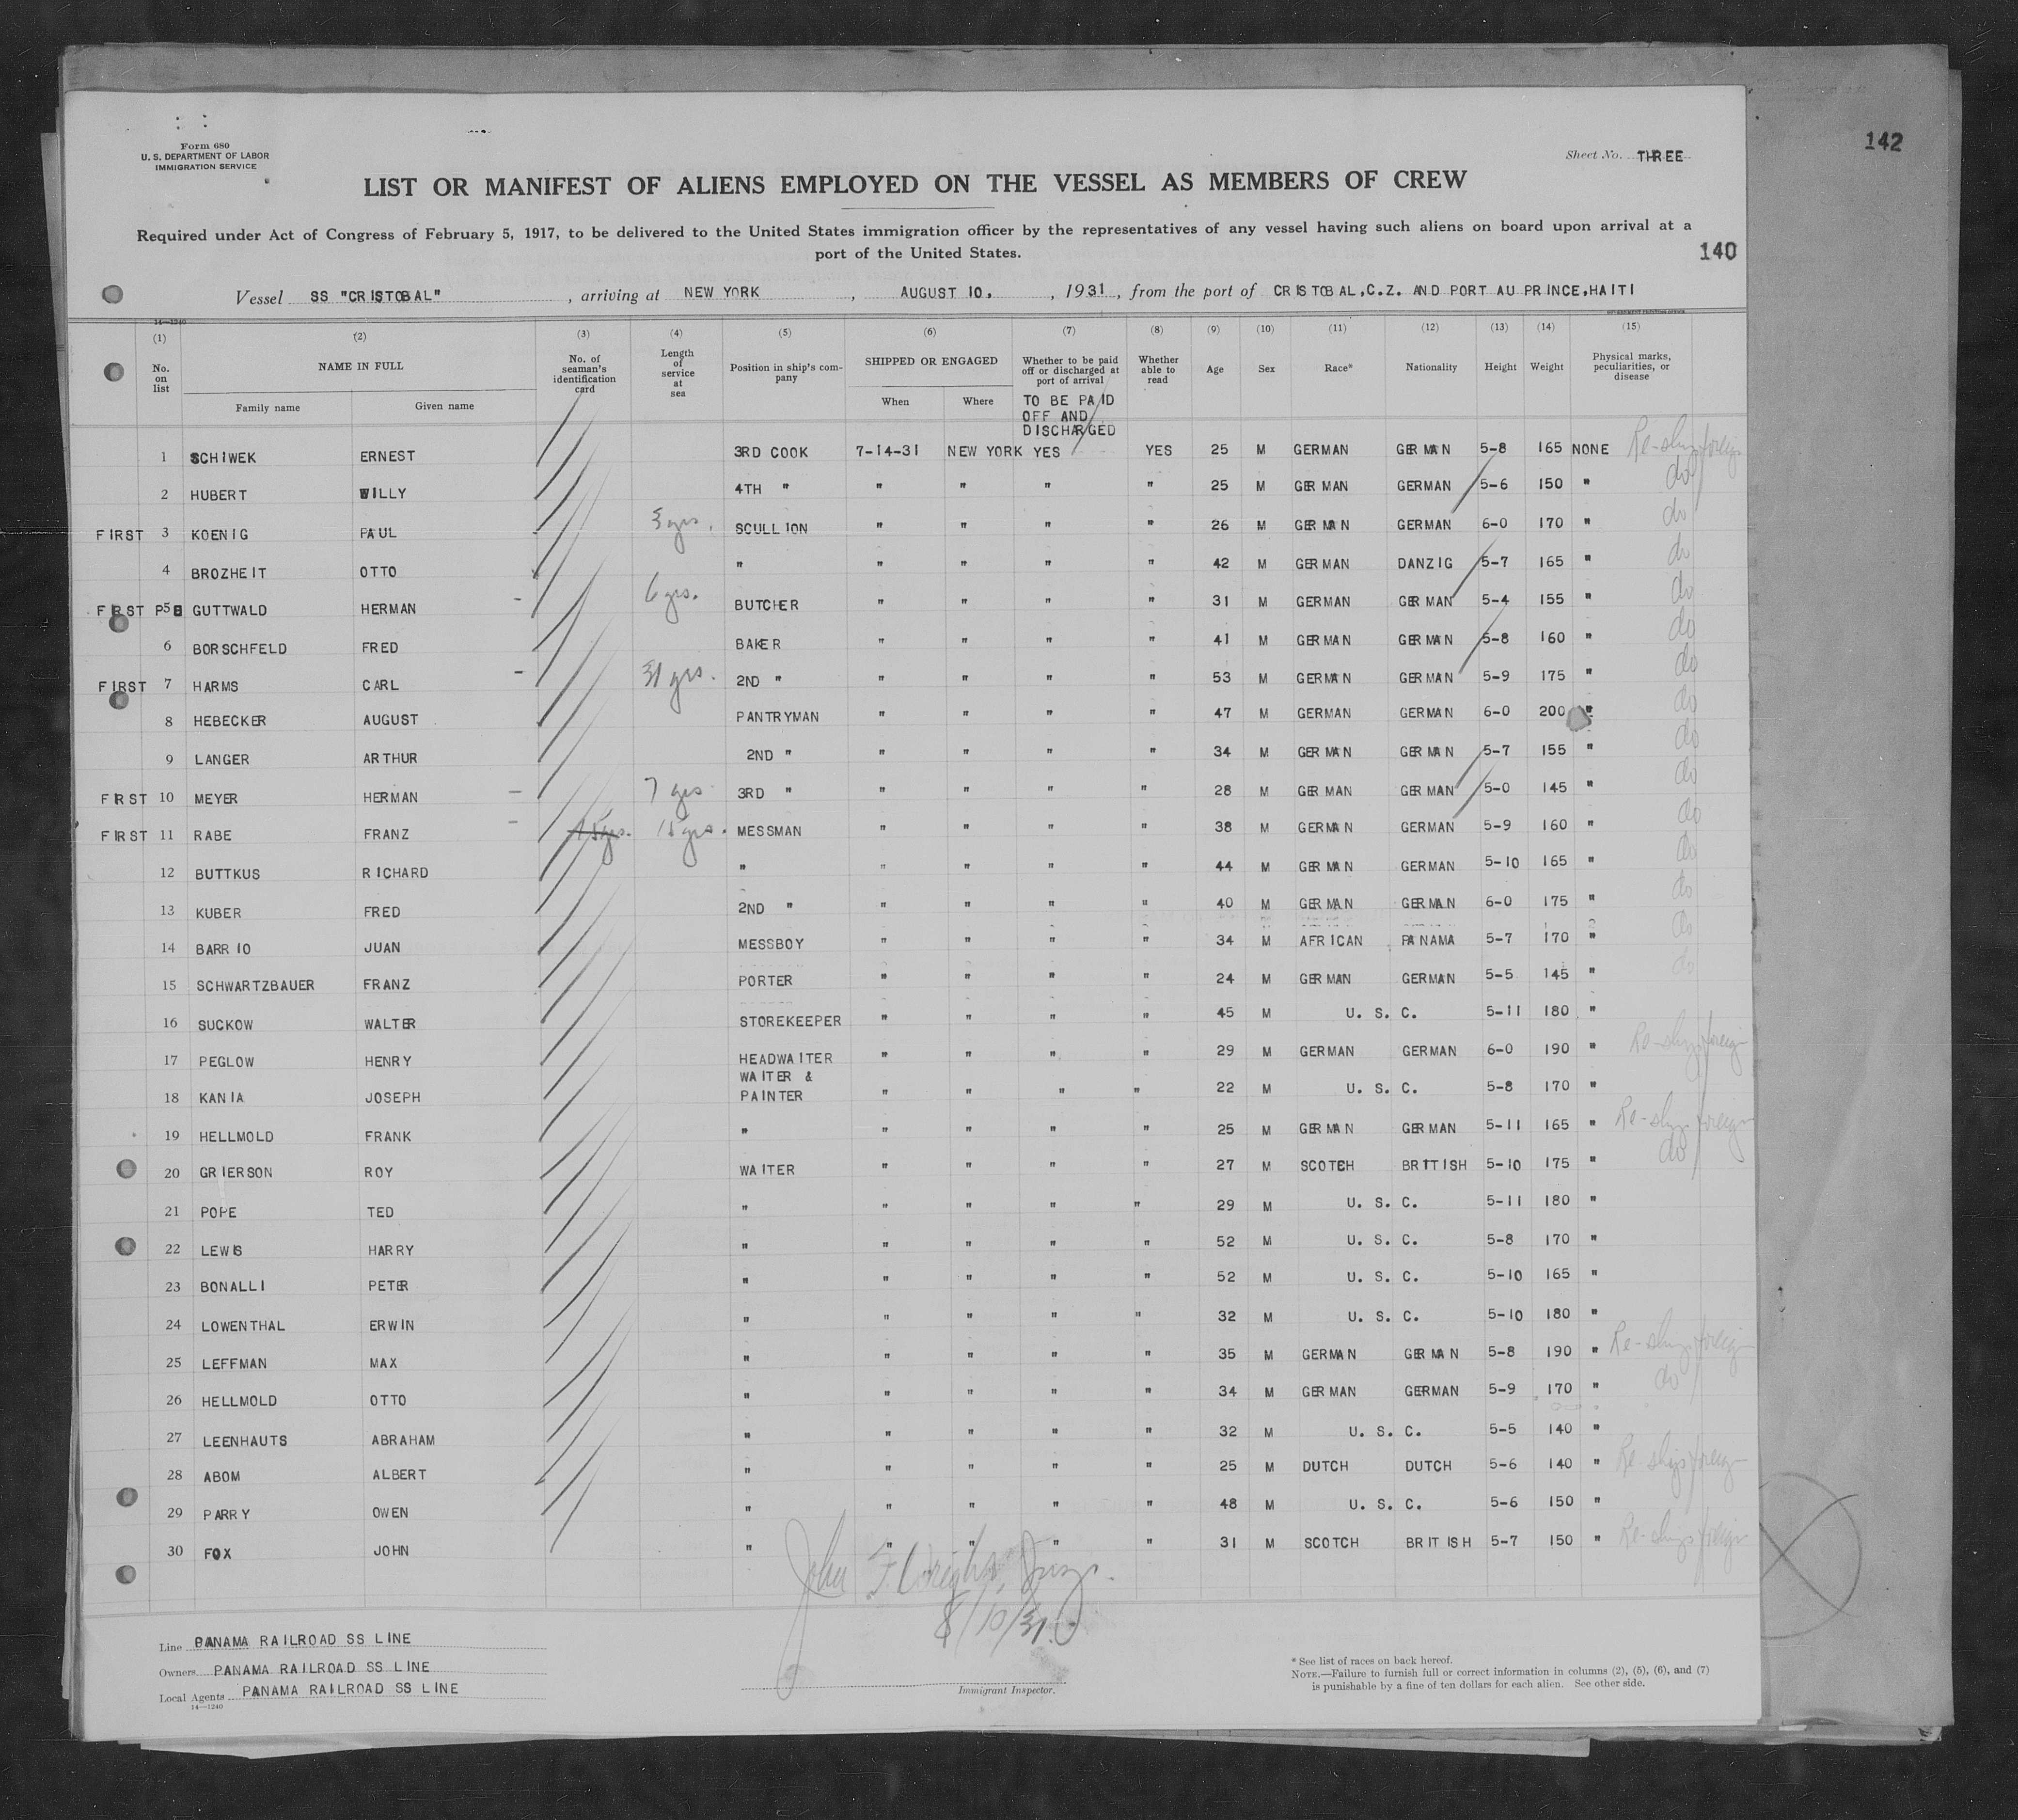 142
Form 680
U. S. DEPARTMENT OF LABOR
IMMIGRATION SERVICE
Sheet No. THREE
LIST OR MANIFEST OF ALIENS EMPLOYED ON THE VESSEL AS MEMBERS OF CREW
Required under Act of Congress of February 5, 1917, to be delivered to the United States immigration officer by the representatives of any vessel having such aliens on board upon arrival at a
port of the United States.
140
Vessel SS "CRISTOBAL" , arriving at NEW YORK , AUGUST 10, , 1931 , from the port of CRISTOBAL,C.Z. AND PORT AU PRINCE,HAITI
14—1240
(1) (2) (3) (4) (5) (6) (7) (8) (9) (10) (11) (12) (13) (14) (15)
No. on list NAME IN FULL Family name Given name No. of seaman's identification card Length of service at sea Position in ship's company SHIPPED OR ENGAGED When Where Whether to be paid off or discharged at port of arrival Whether able to read Age Sex Race* Nationality Height Weight Physical marks, peculiarities, or disease
TO BE PAID OFF AND DISCHARGED
1 SCHIWEK ERNEST 3RD COOK 7-14-31 NEW YORK YES YES 25 M GERMAN GERMAN 5-8 165 NONE Re-ships foreign
2 HUBERT WILLY 4TH " " " " " 25 M GERMAN GERMAN 5-6 150 " do
FIRST 3 KOENIG PAUL 3 yrs. SCULLION " " " " 26 M GERMAN GERMAN 6-0 170 " do
4 BROZHEIT OTTO " " " " " 42 M GERMAN DANZIG 5-7 165 " do
FIRST P5B GUTTWALD HERMAN - 6 yrs. BUTCHER " " " " 31 M GERMAN GERMAN 5-4 155 " do
6 BORSCHFELD FRED BAKER " " " " 41 M GERMAN GERMAN 5-8 160 " do
FIRST 7 HARMS CARL - 31 yrs. 2ND " " " " " 53 M GERMAN GERMAN 5-9 175 " do
8 HEBECKER AUGUST PANTRYMAN " " " " 47 M GERMAN GERMAN 6-0 200 " do
9 LANGER ARTHUR 2ND " " " " " 34 M GERMAN GERMAN 5-7 155 " do
FIRST 10 MEYER HERMAN - 7 yrs 3RD " " " " " 28 M GERMAN GERMAN 5-0 145 " do
FIRST 11 RABE FRANZ - 15 yrs. 15 yrs. MESSMAN " " " " 38 M GERMAN GERMAN 5-9 160 " do
12 BUTTKUS RICHARD " " " " " 44 M GERMAN GERMAN 5-10 165 " do
13 KUBER FRED 2ND " " " " " 40 M GERMAN GERMAN 6-0 175 " do
14 BARRIO JUAN MESSBOY " " " " 34 M AFRICAN PANAMA 5-7 170 " do
15 SCHWARTZBAUER FRANZ PORTER " " " " 24 M GERMAN GERMAN 5-5 145 " do
16 SUCKOW WALTER STOREKEEPER " " " " 45 M U. S. C. 5-11 180 "
17 PEGLOW HENRY HEADWAITER " " " " 29 M GERMAN GERMAN 6-0 190 " Re-ships foreign
18 KANIA JOSEPH WAITER & PAINTER " " " " 22 M U. S. C. 5-8 170 "
19 HELLMOLD FRANK " " " " " 25 M GERMAN GERMAN 5-11 165 " Re-ships foreign
20 GRIERSON ROY WAITER " " " " 27 M SCOTCH BRITISH 5-10 175 " do
21 POPE TED " " " " " 29 M U. S. C. 5-11 180 "
22 LEWIS HARRY " " " " " 52 M U. S. C. 5-8 170 "
23 BONALLI PETER " " " " " 52 M U. S. C. 5-10 165 "
24 LOWENTHAL ERWIN " " " " " 32 M U. S. C. 5-10 180 "
25 LEFFMAN MAX " " " " " 35 M GERMAN GERMAN 5-8 190 " Re-ships foreign
26 HELLMOLD OTTO " " " " " 34 M GERMAN GERMAN 5-9 170 " do
27 LEENHAUTS ABRAHAM " " " " " 32 M U. S. C. 5-5 140 "
28 ABOM ALBERT " " " " " 25 M DUTCH DUTCH 5-6 140 " Re-ships foreign
29 PARRY OWEN " " " " " 48 M U. S. C. 5-6 150 "
30 FOX JOHN " " " " " 31 M SCOTCH BRITISH 5-7 150 " Re-ships foreign
John F. Wright
8/10/31
Line PANAMA RAILROAD SS LINE
Owners PANAMA RAILROAD SS LINE
Local Agents PANAMA RAILROAD SS LINE
14—1240
Immigrant Inspector.
* See list of races on back hereof.
NOTE.—Failure to furnish full or correct information in columns (2), (5), (6), and (7)
is punishable by a fine of ten dollars for each alien. See other side.